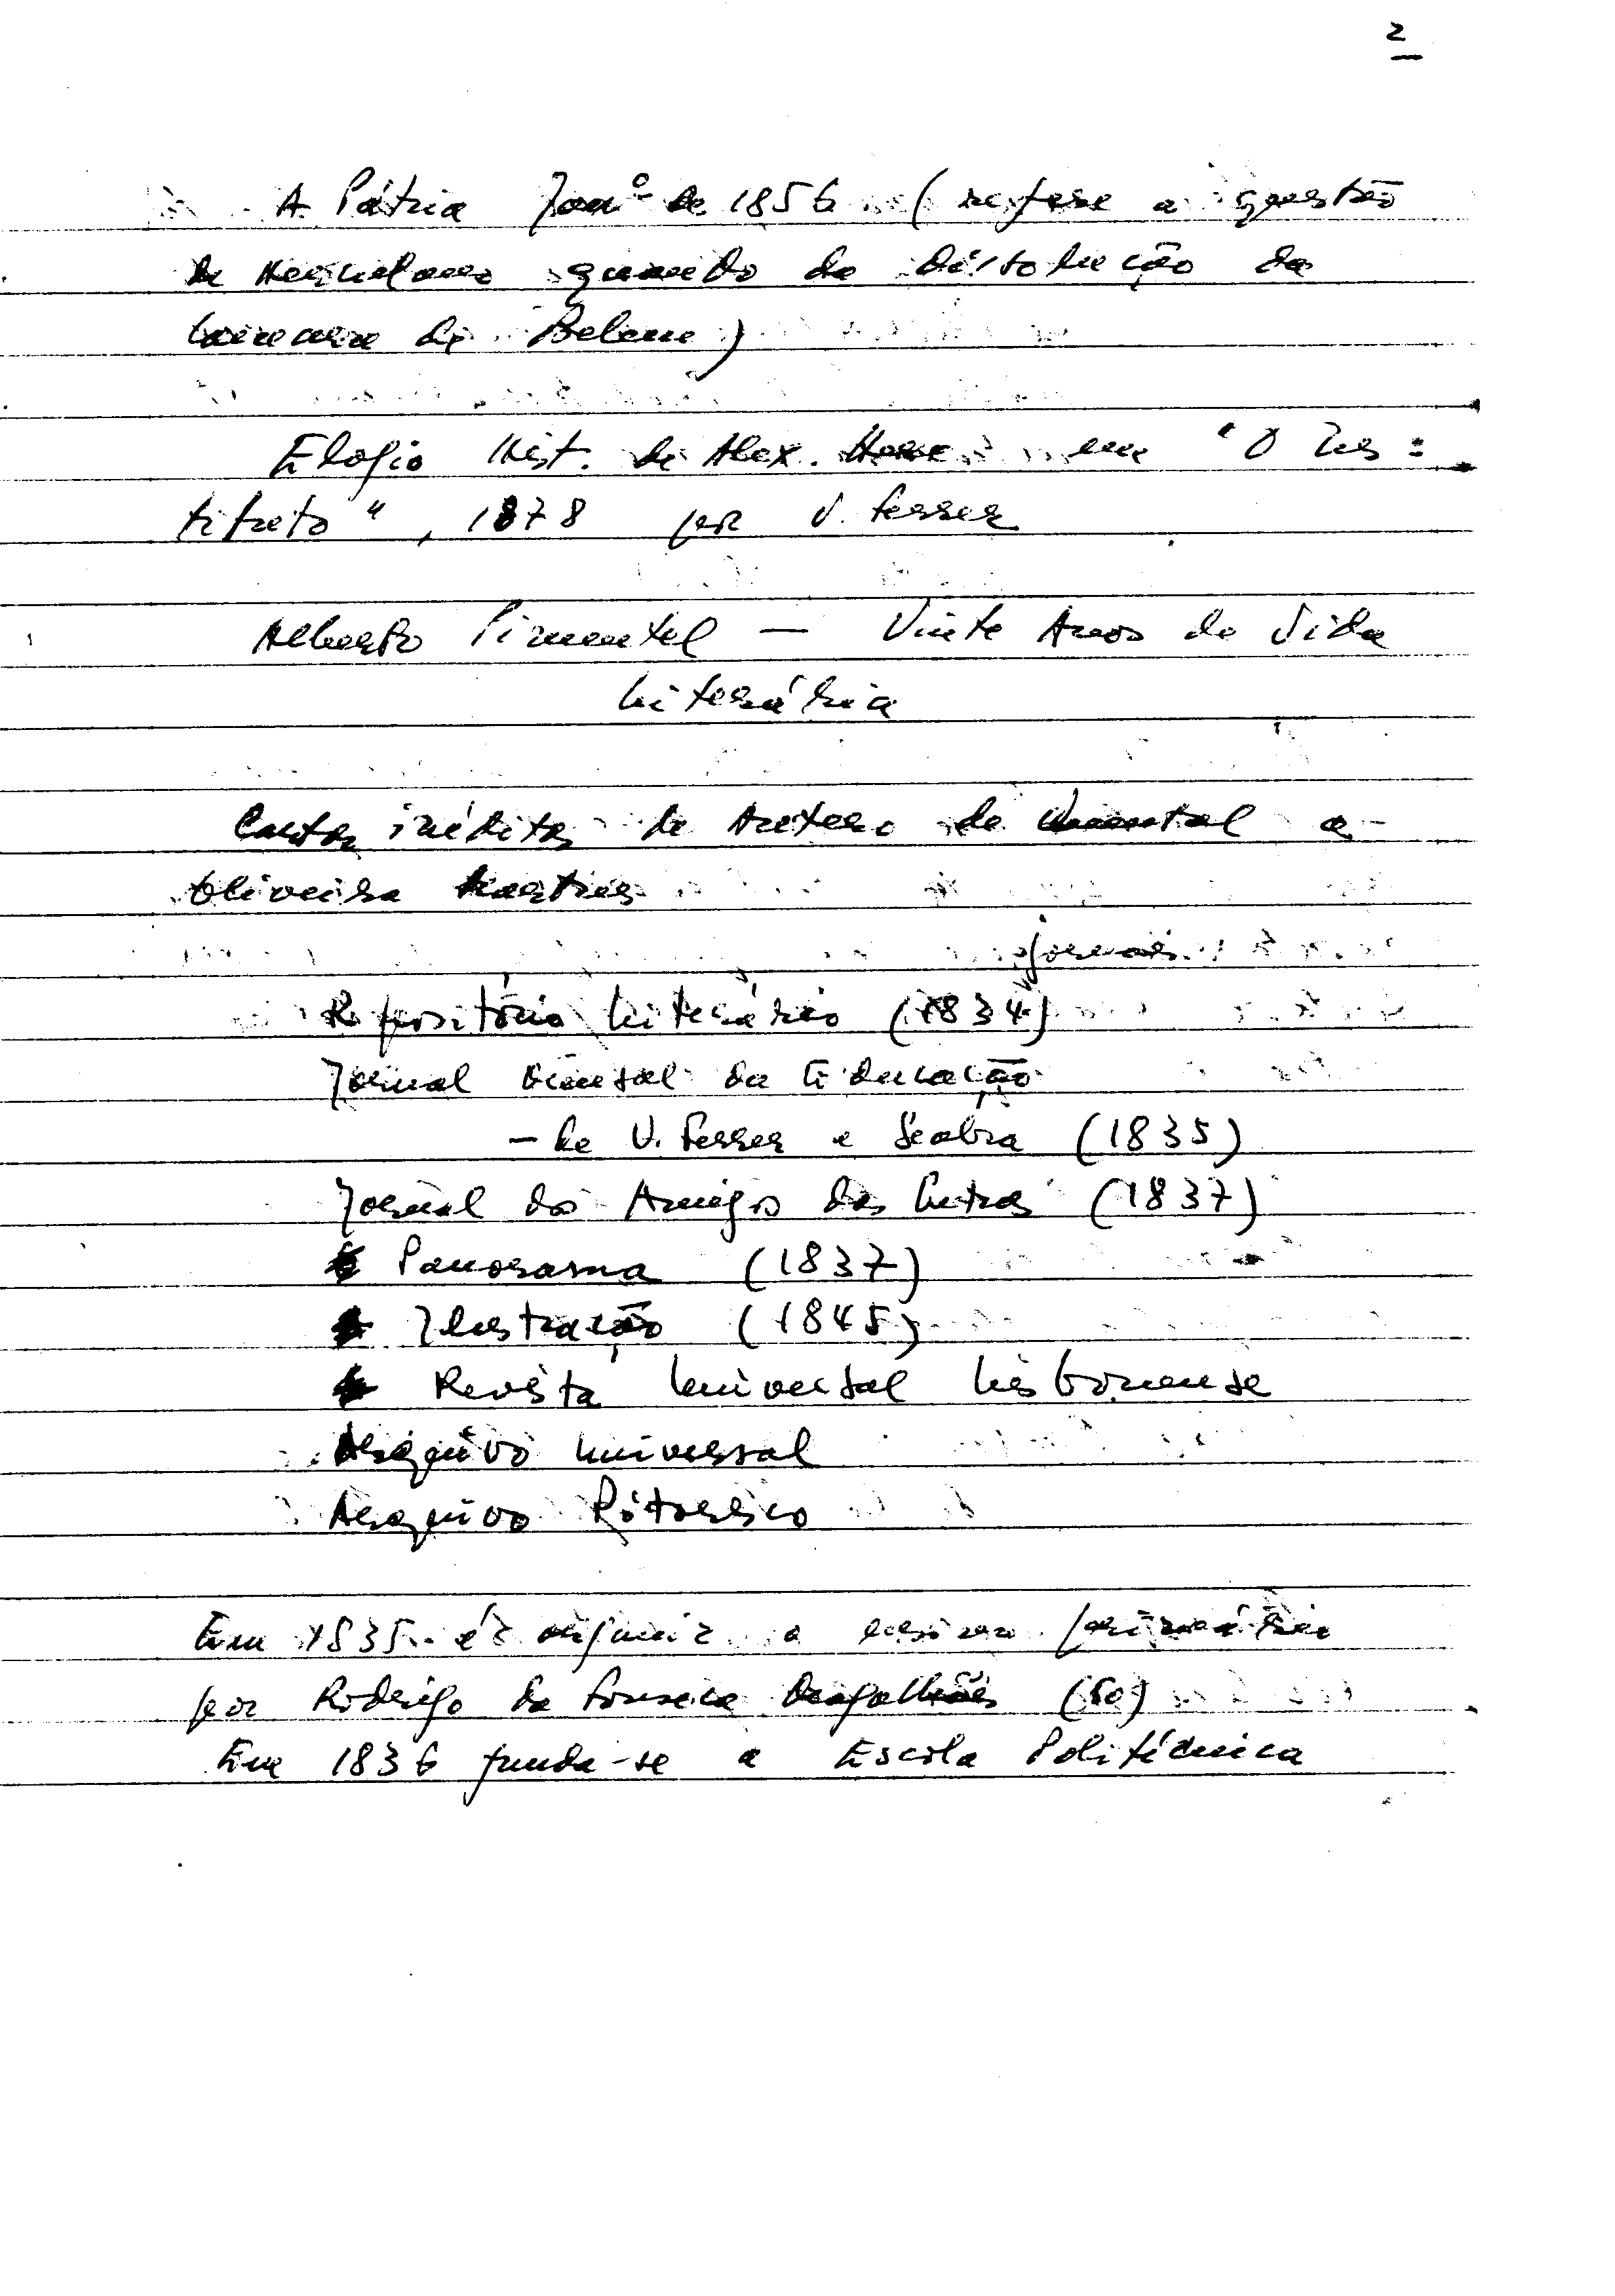 2
A Pátria Janº de 1856 (refere a questão
de Herculano quando da dissolução da
Câmara de Belem)
Elogio Hist. de Alex. Herc. em "O Ins=
tituto", 1878 por V. Ferrer
Alberto Pimentel — Vinte Anos de Vida
Literária
Cartas inéditas de Antero de Quental a
Oliveira Martins
jornais
Repositório Literário (1834)
Jornal Mensal da Educação
- de V. Ferrer e Seabra (1835)
Jornal dos Amigos das Letras (1837)
Panorama (1837)
Ilustração (1845)
Revista Universal Lisbonense
Arquivo Universal
Arquivo Pitoresco
Em 1835 o ensino primário
por Rodrigo da Fonseca Magalhães (50)
Em 1836 funda-se a Escola Politécnica